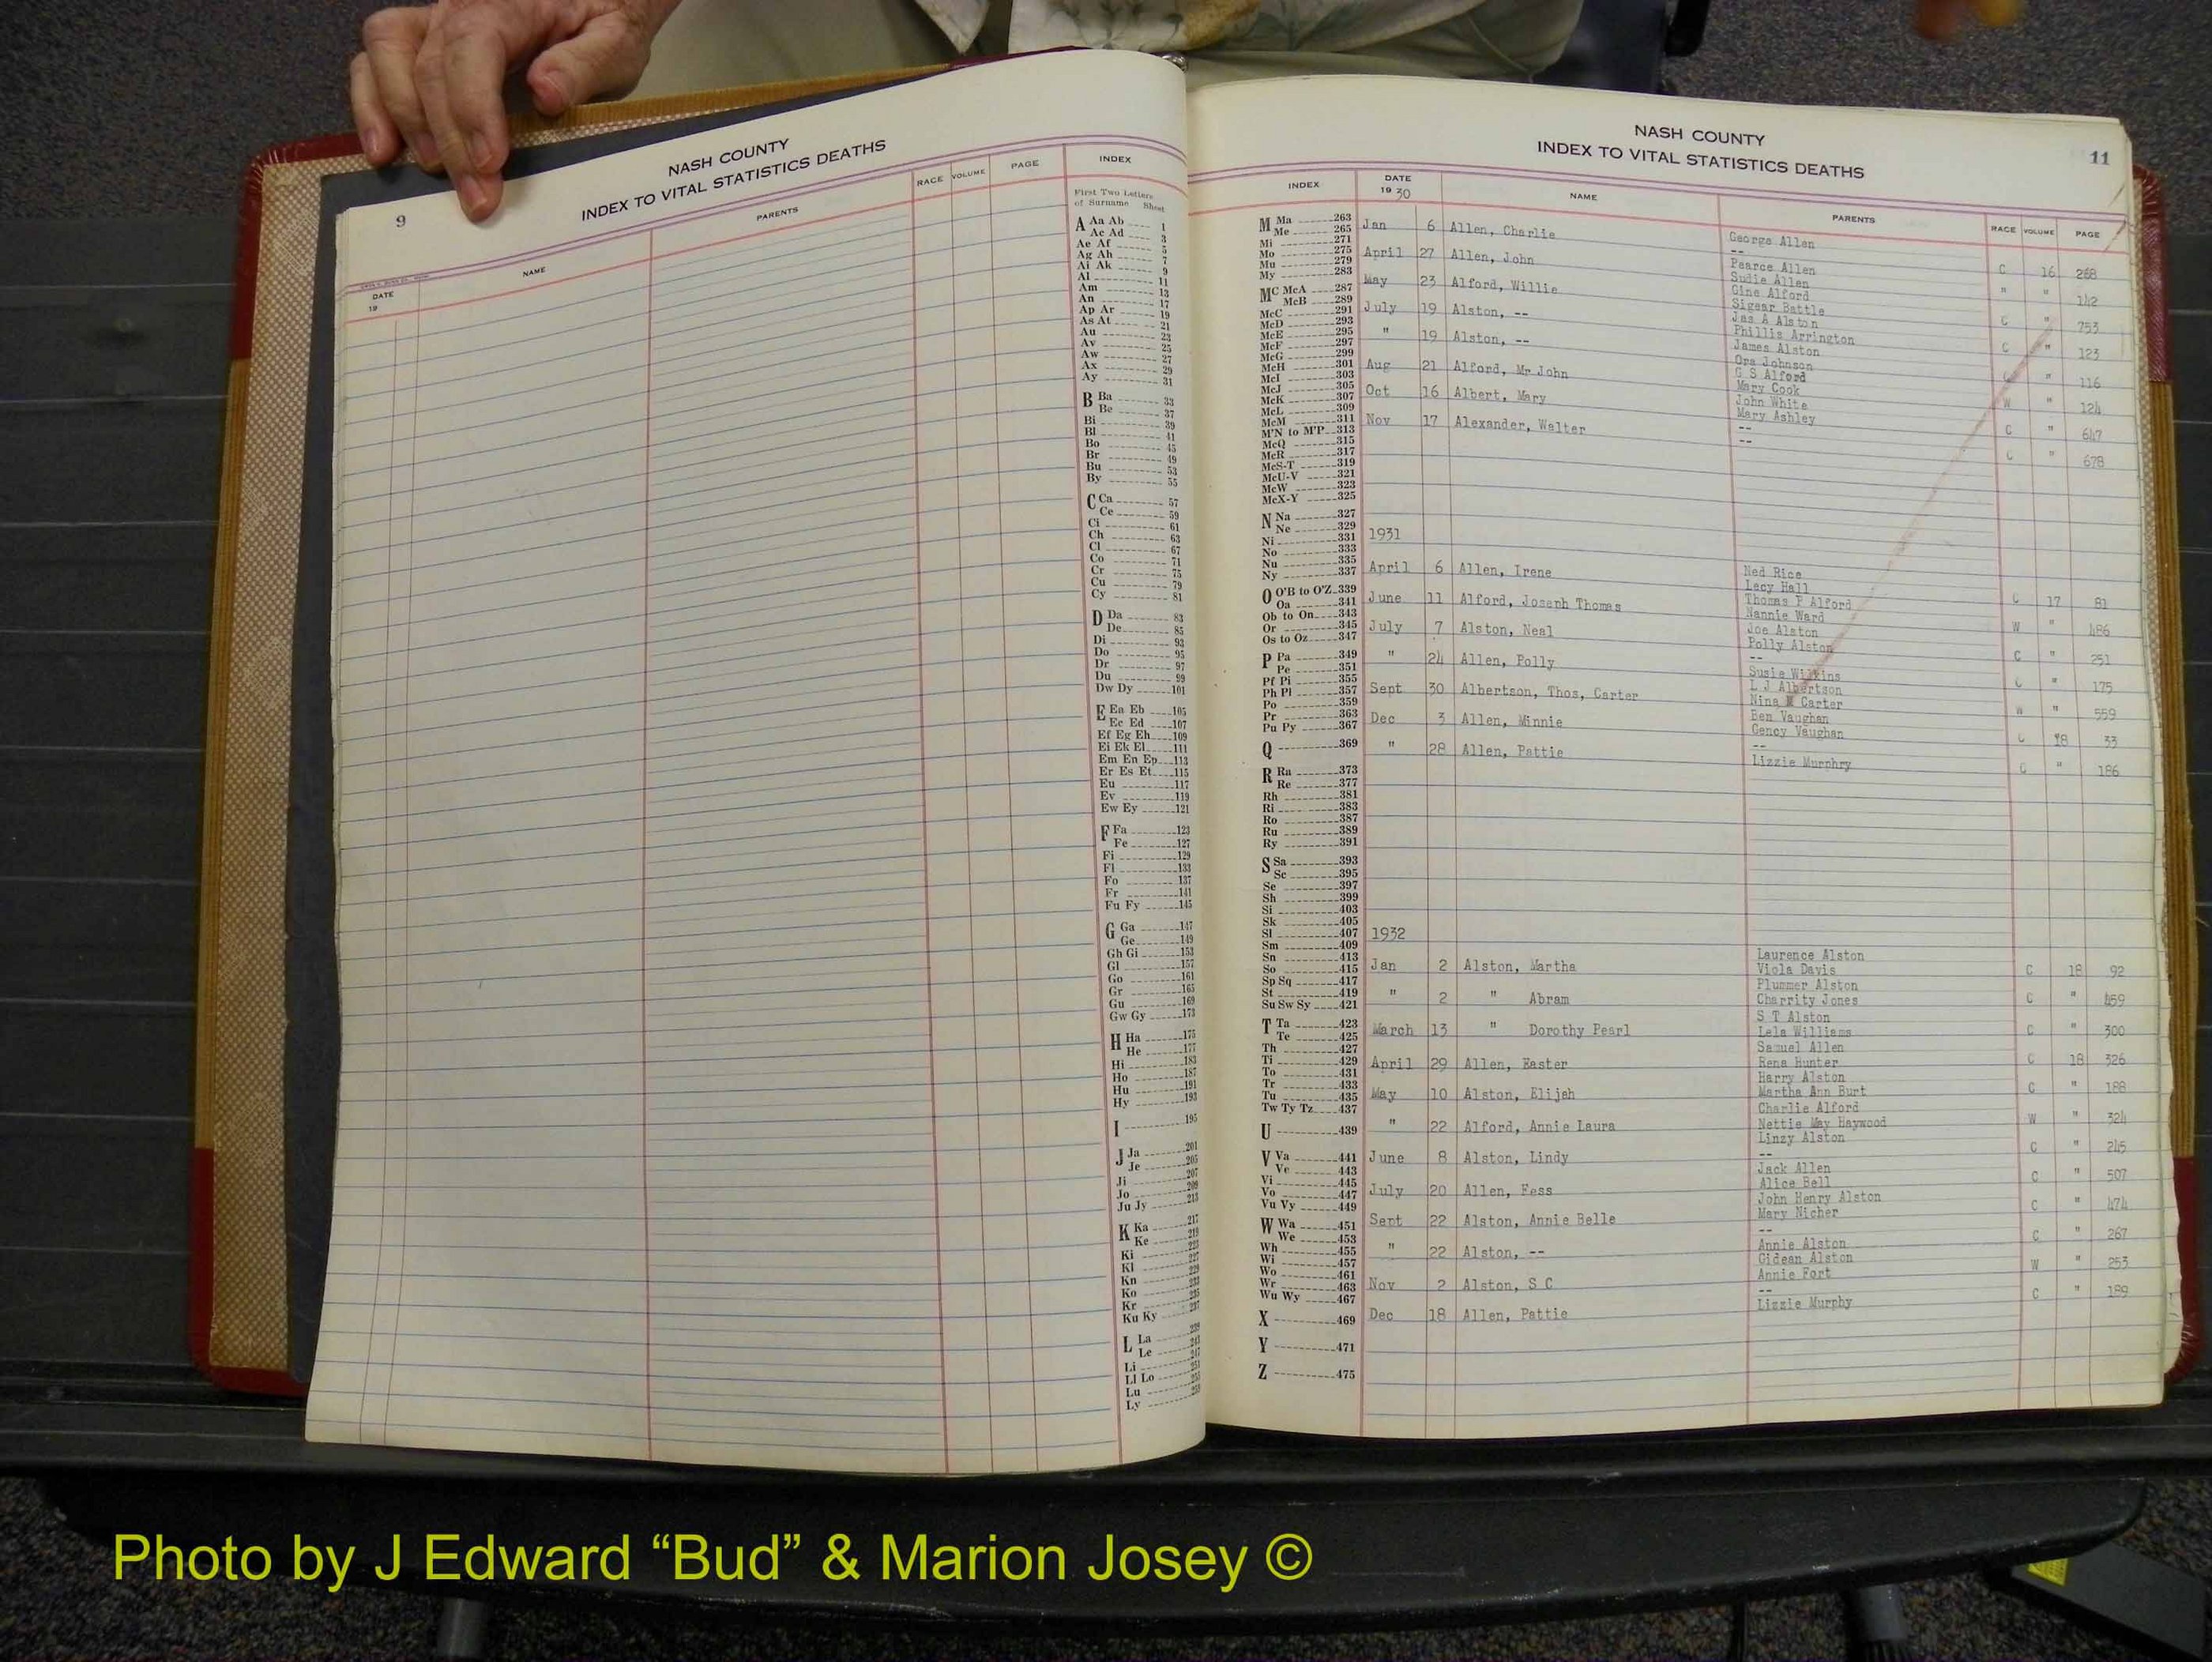 NASH COUNTY
INDEX TO VITAL STATISTICS DEATHS
9
DATE
19
NAME
PARENTS
RACE VOLUME PAGE INDEX
First Two Letters
of Surname Sheet
A Aa Ab 1
Ac Ad 3
Ae Af 5
Ag Ah 7
Ai Ak 9
Al 11
Am 13
An 17
Ap Ar 19
As At 21
Au 23
Av 25
Aw 27
Ax 29
Ay 31
B Ba 33
Be 37
Bi 39
Bl 41
Bo 45
Br 49
Bu 53
By 55
C Ca 57
Ce 59
Ci 61
Ch 63
Cl 67
Co 71
Cr 75
Cu 79
Cy 81
D Da 83
De 85
Di 93
Do 95
Dr 97
Du 99
Dw Dy 101
E Ea Eb 105
Ec Ed 107
Ef Eg Eh 109
Ei Ek El 111
Em En Ep 113
Er Es Et 115
Eu 117
Ev 119
Ew Ey 121
F Fa 123
Fe 127
Fi 129
Fl 133
Fo 137
Fr 141
Fu Fy 145
G Ga 147
Ge 149
Gh Gi 153
Gl 157
Go 161
Gr 165
Gu 169
Gw Gy 173
H Ha 175
He 177
Hi 183
Ho 187
Hu 191
Hy 193
I 195
J Ja 201
Je 205
Ji 207
Jo 209
Ju Jy 213
K Ka 217
Ke 219
Ki 223
Kl 227
Kn 229
Ko 233
Kr 235
Ku Ky 237
L La 239
Le 243
Li 247
Ll Lo
Lu
Ly
NASH COUNTY
INDEX TO VITAL STATISTICS DEATHS
11
INDEX DATE NAME PARENTS RACE VOLUME PAGE
19 30
M Ma 263
Me 265
Mi 271
Mo 275
Mu 279
My 283
MC McA 287
McB 289
McC 291
McD 293
McE 295
McF 297
McG 299
McH 301
McI 303
McJ 305
McK 307
McL 309
McM 311
M'N to M'P 313
McQ 315
McR 317
McS-T 319
McU-V 321
McW 323
McX-Y 325
N Na 327
Ne 329
Ni 331
No 333
Nu 335
Ny 337
O O'B to O'Z 339
Oa 341
Ob to On 343
Or 345
Os to Oz 347
P Pa 349
Pe 351
Pf Pi 355
Ph Pl 357
Po 359
Pr 363
Pu Py 367
Q 369
R Ra 373
Re 377
Rh 381
Ri 383
Ro 387
Ru 389
Ry 391
S Sa 393
Sc 395
Se 397
Sh 399
Si 403
Sk 405
Sl 407
Sm 409
Sn 413
So 415
Sp Sq 417
St 419
Su Sw Sy 421
T Ta 423
Te 425
Th 427
Ti 429
To 431
Tr 433
Tu 435
Tw Ty Tz 437
U 439
V Va 441
Ve 443
Vi 445
Vo 447
Vu Vy 449
W Wa 451
We 453
Wh 455
Wi 457
Wo 461
Wr 463
Wu Wy 467
X 469
Y 471
Z 475
Jan 6 Allen, Charlie George Allen
-- C 16 268
April 27 Allen, John Pearce Allen
Sudie Allen " " 142
May 23 Alford, Willie Gine Alford
Sigear Battle C " 753
July 19 Alston, -- Jas A Alston
Phillis Arrington C " 123
" 19 Alston, -- James Alston
Ora Johnson C " 116
Aug 21 Alford, Mr John G S Alford
Mary Cook W " 124
Oct 16 Albert, Mary John White
Mary Ashley C " 647
Nov 17 Alexander, Walter --
-- C " 678
1931
April 6 Allen, Irene Ned Rice
Lecy Hall C 17 81
June 11 Alford, Joseph Thomas Thomas P Alford
Nannie Ward W " 486
July 7 Alston, Neal Joe Alston
Polly Alston C " 251
" 24 Allen, Polly --
Susie Wilkins C " 175
Sept 30 Albertson, Thos, Carter L J Albertson
Nina M Carter W " 559
Dec 3 Allen, Minnie Ben Vaughan
Gency Vaughan C 18 33
" 28 Allen, Pattie --
Lizzie Murphry C " 186
1932
Jan 2 Alston, Martha Laurence Alston
Viola Davis C 18 92
" 2 " Abram Plummer Alston
Charrity Jones C " 459
March 13 " Dorothy Pearl S T Alston
Lela Williams C " 300
April 29 Allen, Easter Samuel Allen
Rena Hunter C 18 326
May 10 Alston, Elijah Harry Alston
Martha Ann Burt C " 188
" 22 Alford, Annie Laura Charlie Alford
Nettie May Haywood W " 324
June 8 Alston, Lindy Linzy Alston
-- C " 245
July 20 Allen, Fess Jack Allen
Alice Bell C " 507
Sept 22 Alston, Annie Belle John Henry Alston
Mary Nicher C " 474
" 22 Alston, -- --
Annie Alston C " 267
Nov 2 Alston, S C Gidean Alston
Annie Fort W " 253
Dec 18 Allen, Pattie --
Lizzie Murphy C " 189
Photo by J Edward “Bud” & Marion Josey ©